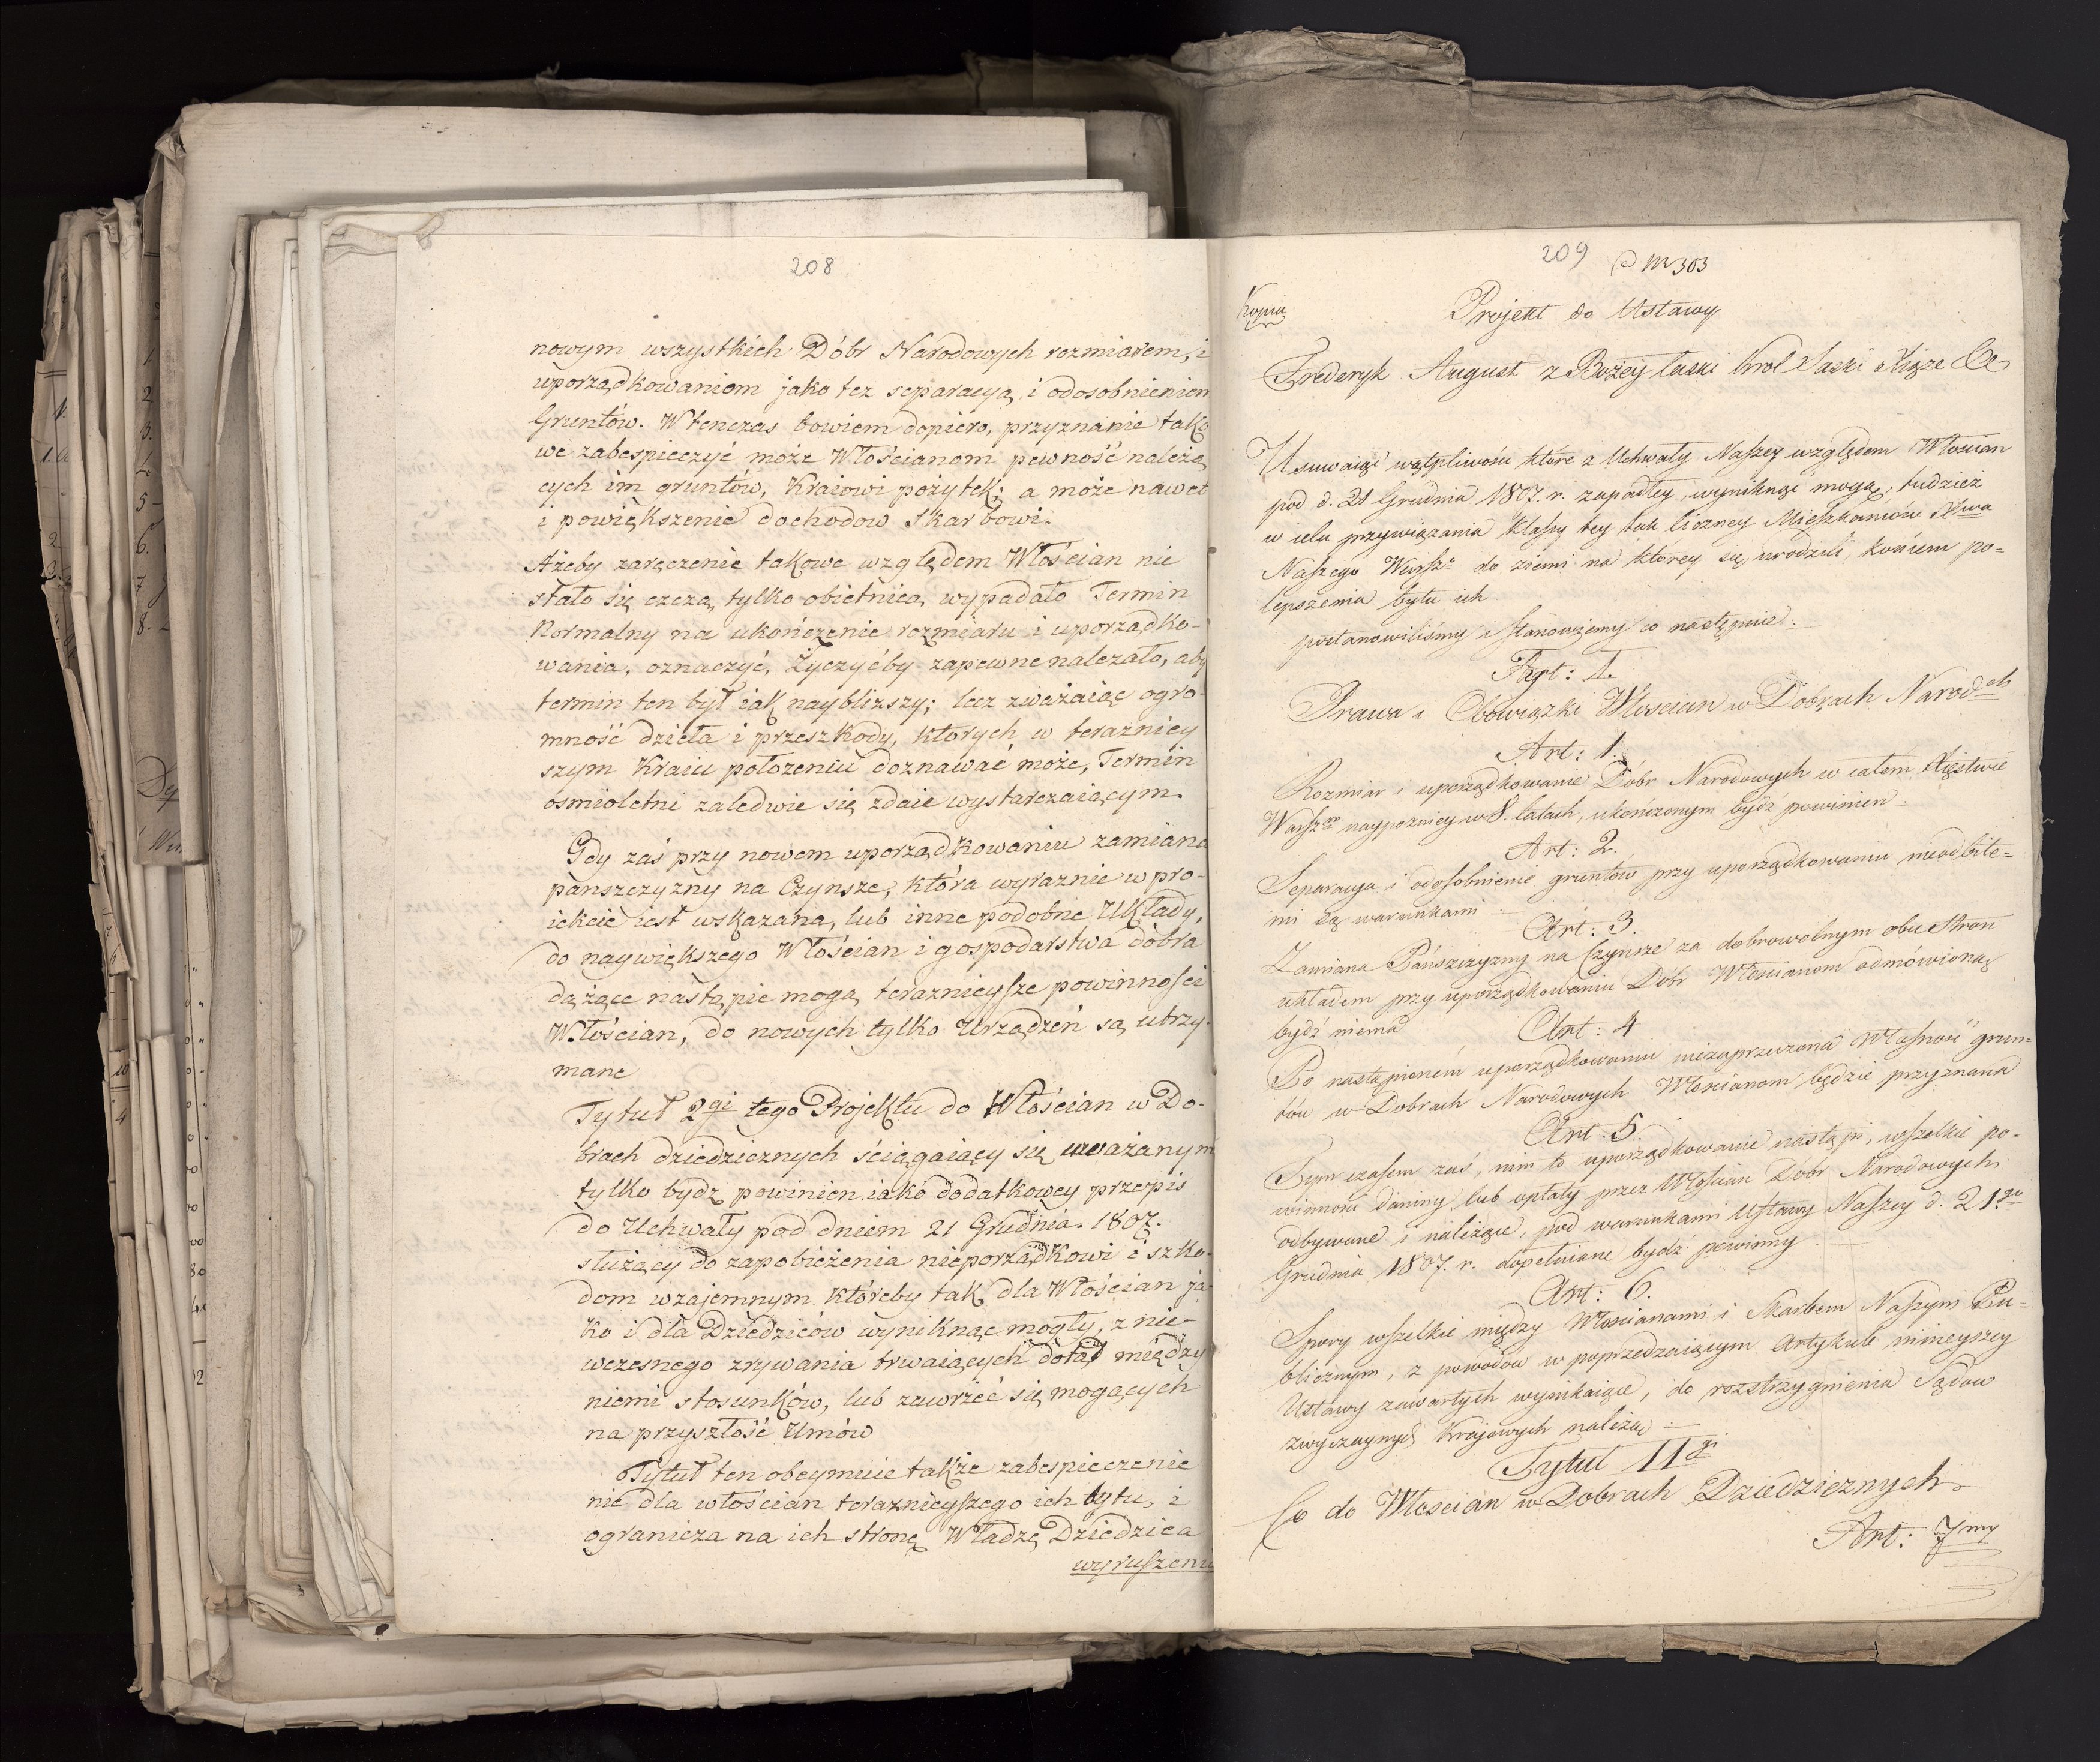 208
nowym wszystkich Dóbr Narodowych rozmiarem, i
uporządkowaniem jako tez separacyą i odosobnieniem
Gruntów. Wtenczas bowiem dopiero, przyznanie tako
we zabespieczyć może Włościanom pewność należą
cych im gruntów, Kraiowi pożytek; a może nawet
i powiększenie dochodow skarbowi.
Ażeby zaręczenie takowe względem Włościan nie
stało się czczą tylko obietnicą wypadało Termin
Normalny na ukończenie rozmiaru i uporządko-
wania, oznaczyć, Życzyćby zapewne nalezało, aby
termin ten był iak nayblizszy; lecz zważaiąc ogro-
mność dzieła i przeszkody, których w teraznicy
szym Kraiu położeniu doznawać może, Termin
osmioletni zaledwie się zdaie wystarczaiącym.
Gdy zaś przy nowem uporządkowaniu zamiana
pańszczyzny na Czynsze, która wyraznie w pro-
iekcie iest wskazana, lub inne podobne Układy,
do naywiększego Włościan i gospodarstwa dobra
dążące nastąpić mogą teraznieysze powinności
Włościan, do nowych tylko Urządzeń są utrzy-
mane
Tytuł 2gi tego Projektu do Włościan w Do-
brach dziedzicznych ściągaiący się uważanym
tylko bydz powinien iako dodatkowey przepis
do Uchwały pod dniem 21 Grudnia 1807.
służący do zapobieżenia nieporządkowi i szko-
dom wzajemnym któreby tak dla Włościan ja-
ko i dla Dziedziców wyniknąc mogły, z nie-
wczesnego zrywania trwaiących dotąd między
niemi stosunków, lub zawrzeć się mogących
na przyszłość Umów
Tytuł ten obeymuie także zabespieczenie
nie dla włościan teraznieyszego ich bytu, i
ogranicza na ich stronę Władzę Dziedzica
wzruszeniu
209
303
Kopia
Projekt do Ustawy
Fryderyk August z Bożey łaski Krol Saski Xiąże &c
Usuwaiąc wątpliwości które z Uchwały Naszey względem Włoscian
pod d. 21 Grudnia 1807. r. zapadłey, wyniknąć mogą, tudzież
w celu przywiązania klassy tey tak liczney Mieszkańców Xtwa
Naszego Warszo do ziemi na którey się urodzili, końcem po-
lepszenia bytu ich
postanowiliśmy i stanowiemy co następuie.
Tyt: I.
Prawa i Obowiązki Włoscian w Dobrach Narodch
Art: 1.
Rozmiar i uporządkowanie Dóbr Narodowych w całem Xięstwie
Warszm naypozniey w 8. latach, ukończonym bydź powinien
Art: 2.
Separacya i odosobnienie gruntów przy uporządkowaniu nieodbite-
mi są warunkami
Art: 3.
Zamiana Pańszczyzny na Czynsze za dobrowolnym obu stron
układem przy uporządkowaniu Dóbr Włoscianom odmówioną
bydź niema
Art: 4
Po nastąpionem uporządkowaniu niezaprzeczona Własność grun-
tów w Dobrach Narodowych Włoscianom będzie przyznana
Art: 5.
Tym czasem zaś, nim to uporządkowanie nastąpi, wszelkie po-
winności daniny lub opłaty przez Włościan Dóbr Narodowych
odbywane i należące, pod warunkami Ustawy Naszey d. 21go
Grudnia 1807. r. dopełniane bydź powinny
Art: 6.
Spory wszelkie między Włoscianami i Skarbem Naszym Pu-
blicznym, z powodow w poprzedzaiącym Artykule ninieyszey
Ustawy zawartych wynikaiące, do rozstrzygnienia Sądow
zwyczaynych Krajowych należą
Tytuł IIgi
Co do Włoscian w Dobrach Dziedzicznych
Art: 7my